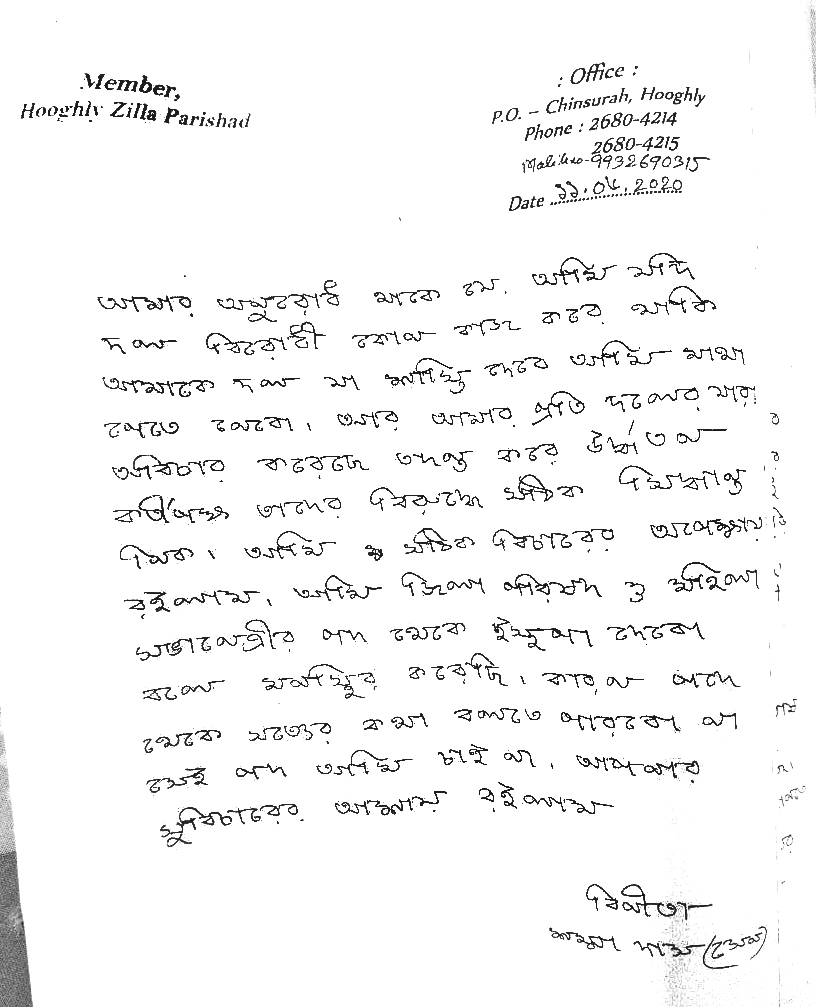 Member,
Hooghly Zilla Parishad
: Office :
P.O. – Chinsurah, Hooghly
Phone : 2680-4214
2680-4215
9932690315
Date ১১.০৮.2020
আমার অনুরোধ থাকে যে, আমি যদি
দল বিরোধী কোন কাজ করে থাকি
আমাকে দল যা শাস্তি দেবে আমি মাথা
পেতে নেবো। আর আমার প্রতি দলের যারা
অবিচার করেছে তদন্ত করে উর্ধ্বতন
কর্তৃপক্ষ তাদের বিরুদ্ধে সঠিক সিদ্ধান্ত
নিক। আমি সঠিক বিচারের অপেক্ষায়
রইলাম, আমি জিলা পরিষদ ও মহিলা
সভানেত্রীর পদ থেকে ইস্তফা দেবো
বলে মনস্থির করেছি। কারণ পদে
থেকে সত্যের কথা বলতে পারবো না
সেই পদ আমি চাই না। আপনার
সুবিচারের আশায় রইলাম
বিনীতা
শম্পা দাস (সেন)